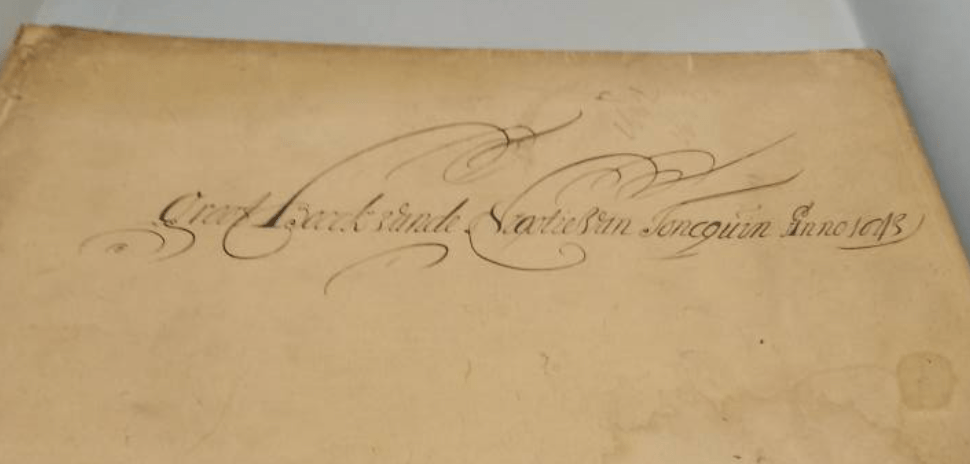 Groot Boeck vande Negotie van Toncquin Anno 1643